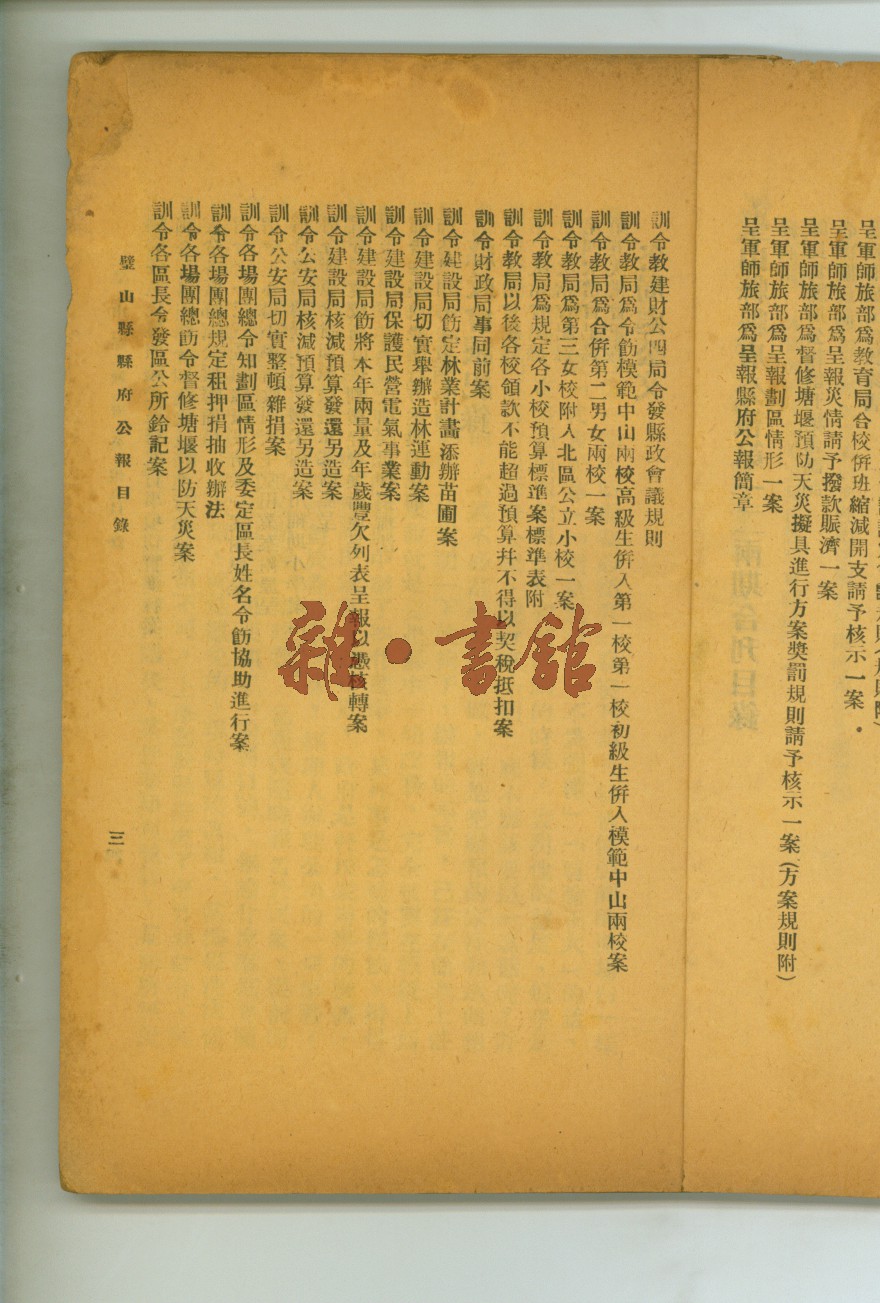 呈軍師旅部爲教育局合校倂班縮减開支請予核示一案
呈軍師旅部爲呈報災情請予撥款賑濟一案
呈軍師旅部爲督修塘堰預防天災擬具進行方案獎罰規則請予核示一案(方案規則附)
呈軍師旅部爲呈報劃區情形一案
呈軍師旅部爲呈報縣府公報簡章
訓令教建財公四局令發縣政會議規則
訓令教局爲令飭模範中山兩校高級生倂入第一校第一校初級生倂入模範中山兩校案
訓令教局爲合倂第二男女兩校一案
訓令教局爲第三女校附入北區公立小校一案
訓令教局爲規定各小校預算標準案標準表附
訓令教局以後各校領款不能超過預算幷不得以契稅抵扣案
訓令財政局事同前案
訓令建設局飭定林業計畫添辦苗圃案
訓令建設局切實舉辦造林運動案
訓令建設局保護民營電氣事業案
訓令建設局飭將本年雨量及年歲豐欠列表呈報以憑核轉案
訓令建設局核減預算發還另造案
訓令公安局核減預算發還另造案
訓令公安局切實整頓雜捐案
訓令各場團總令知劃區情形及委定區長姓名令飭協助進行案
訓令各場團總規定租押捐抽收辦法
訓令各場團總飭令督修塘堰以防天災案
訓令各區長令發區公所鈐記案
璧山縣縣府公報目錄
三
雜·書館